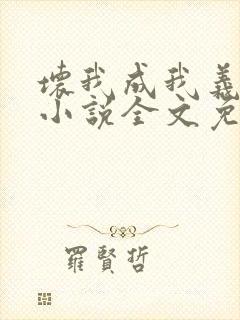 壞我成我義
小說全文免
羅賢哲